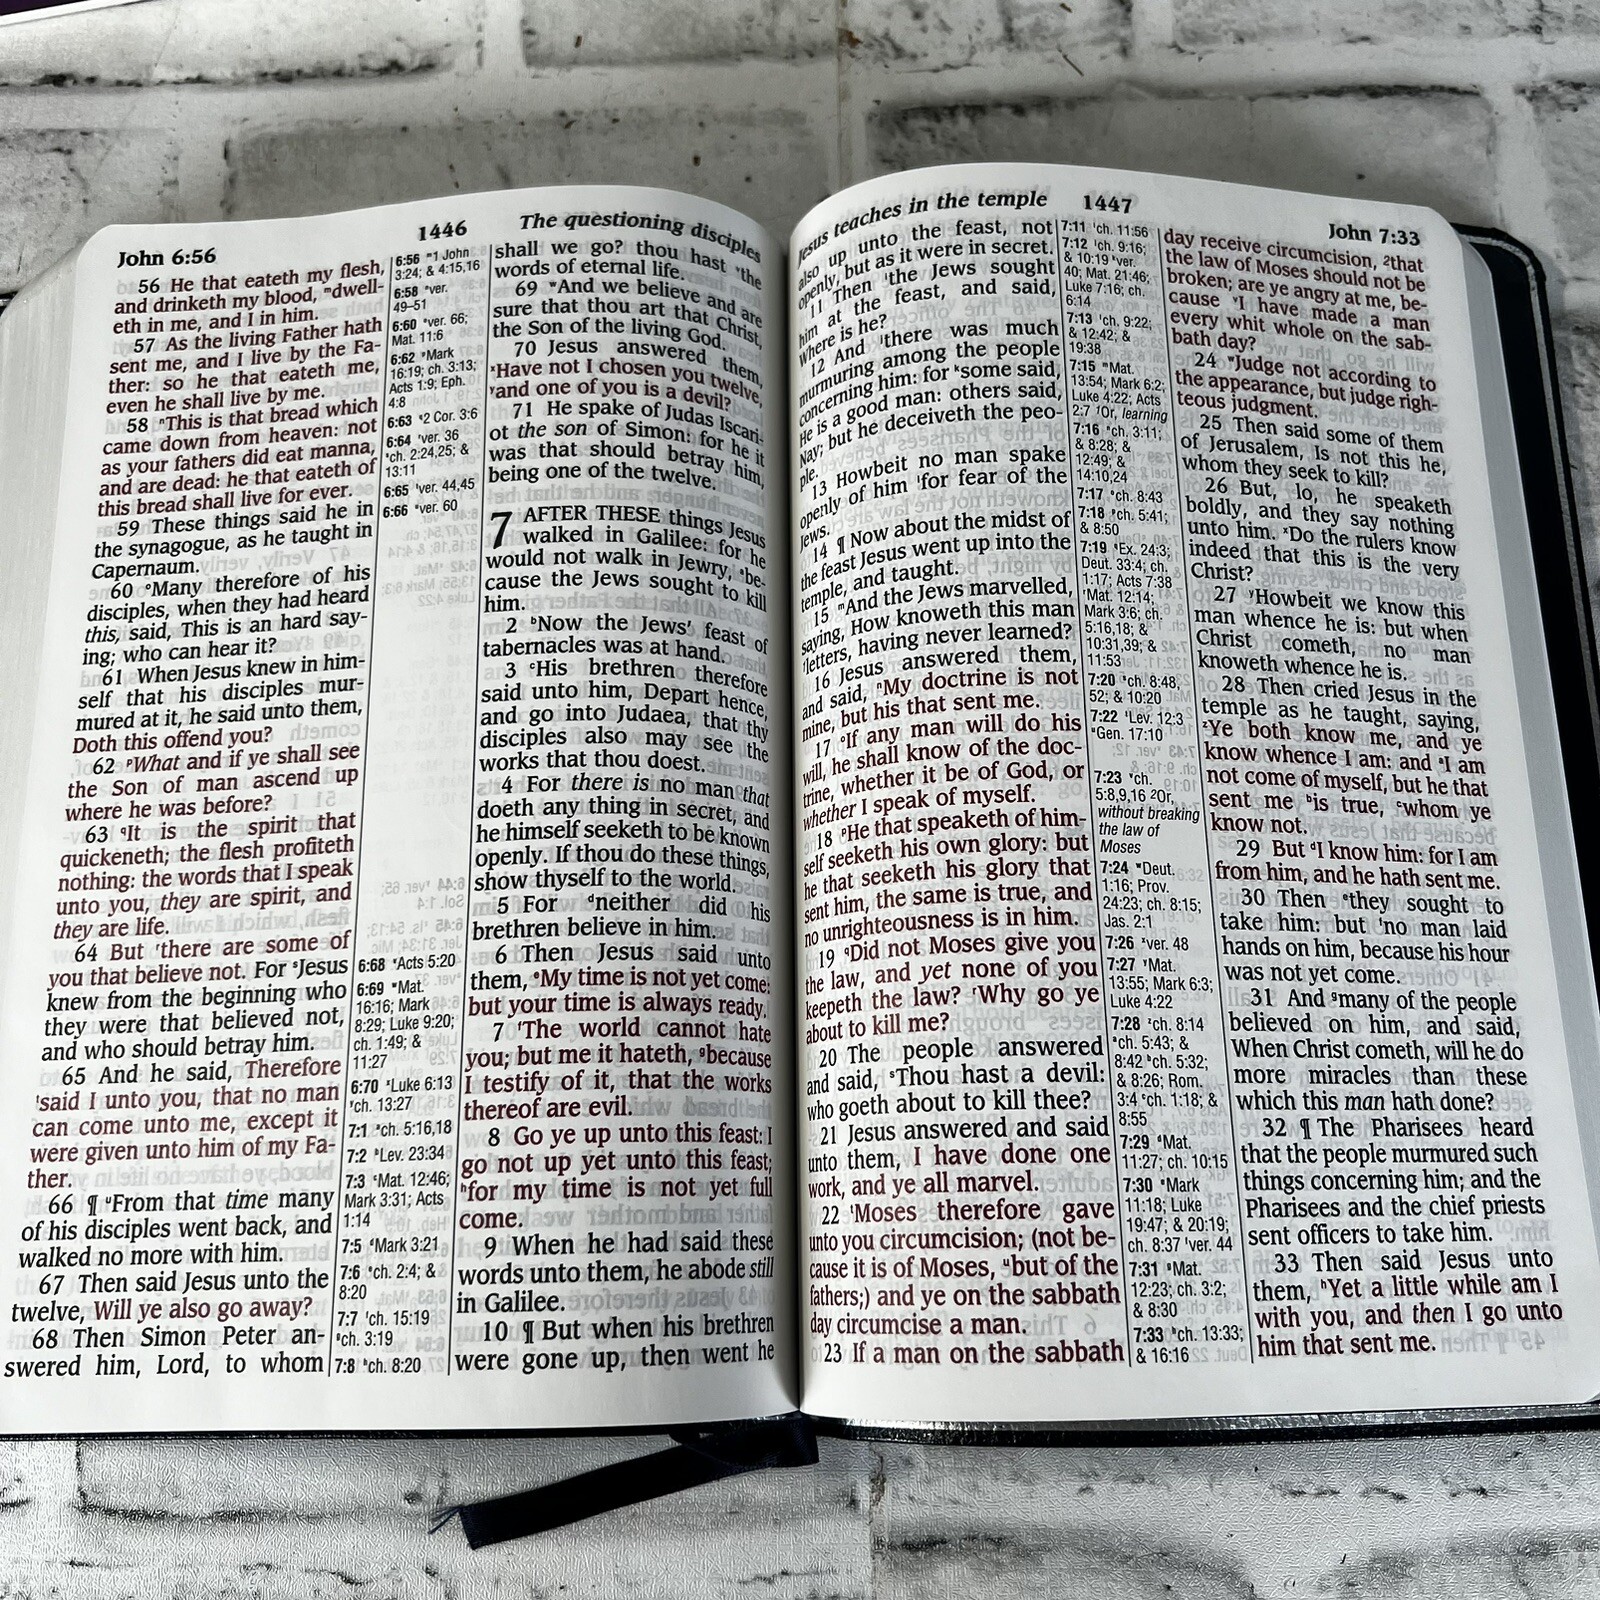 John 6:56
1446
The questioning disciples
56 He that eateth my flesh,
and drinketh my blood, ᵐdwell-
eth in me, and I in him.
57 As the living Father hath
sent me, and I live by the Fa-
ther: so he that eateth me,
even he shall live by me.
58 ⁿThis is that bread which
came down from heaven: not
as your fathers did eat manna,
and are dead: he that eateth of
this bread shall live for ever.
59 These things said he in
the synagogue, as he taught in
Capernaum.
60 ᵒMany therefore of his
disciples, when they had heard
this, said, This is an hard say-
ing; who can hear it?
61 When Jesus knew in him-
self that his disciples mur-
mured at it, he said unto them,
Doth this offend you?
62 ᵖWhat and if ye shall see
the Son of man ascend up
where he was before?
63 ᑫIt is the spirit that
quickeneth; the flesh profiteth
nothing: the words that I speak
unto you, they are spirit, and
they are life.
64 But ʳthere are some of
you that believe not. For ˢJesus
knew from the beginning who
they were that believed not,
and who should betray him.
65 And he said, Therefore
ᵗsaid I unto you, that no man
can come unto me, except it
were given unto him of my Fa-
ther.
66 ¶ ᵘFrom that time many
of his disciples went back, and
walked no more with him.
67 Then said Jesus unto the
twelve, Will ye also go away?
68 Then Simon Peter an-
swered him, Lord, to whom
6:56 ᵐ1 John
3:24; & 4:15,16
6:58 ⁿver.
49–51
6:60 ᵒver. 66;
Mat. 11:6
6:62 ᵖMark
16:19; ch. 3:13;
Acts 1:9; Eph.
4:8
6:63 ᑫ2 Cor. 3:6
6:64 ʳver. 36
ˢch. 2:24,25; &
13:11
6:65 ᵗver. 44,45
6:66 ᵘver. 60
6:68 ᵛActs 5:20
6:69 ʷMat.
16:16; Mark
8:29; Luke 9:20;
ch. 1:49; &
11:27
6:70 ˣLuke 6:13
ʸch. 13:27
7:1 ᵃch. 5:16,18
7:2 ᵇLev. 23:34
7:3 ᶜMat. 12:46;
Mark 3:31; Acts
1:14
7:5 ᵈMark 3:21
7:6 ᵉch. 2:4; &
8:20
7:7 ᶠch. 15:19
ᵍch. 3:19
7:8 ʰch. 8:20
shall we go? thou hast ᵛthe
words of eternal life.
69 ʷAnd we believe and are
sure that thou art that Christ,
the Son of the living God.
70 Jesus answered them,
ˣHave not I chosen you twelve,
ʸand one of you is a devil?
71 He spake of Judas Iscari-
ot the son of Simon: for he it
was that should betray him,
being one of the twelve.
7 AFTER THESE things Jesus
walked in Galilee: for he
would not walk in Jewry, ᵃbe-
cause the Jews sought to kill
him.
2 ᵇNow the Jews' feast of
tabernacles was at hand.
3 ᶜHis brethren therefore
said unto him, Depart hence,
and go into Judaea, that thy
disciples also may see the
works that thou doest.
4 For there is no man that
doeth any thing in secret, and
he himself seeketh to be known
openly. If thou do these things,
show thyself to the world.
5 For ᵈneither did his
brethren believe in him.
6 Then Jesus said unto
them, ᵉMy time is not yet come:
but your time is always ready.
7 ᶠThe world cannot hate
you; but me it hateth, ᵍbecause
I testify of it, that the works
thereof are evil.
8 Go ye up unto this feast: I
go not up yet unto this feast;
ʰfor my time is not yet full
come.
9 When he had said these
words unto them, he abode still
in Galilee.
10 ¶ But when his brethren
were gone up, then went he
Jesus teaches in the temple
1447
John 7:33
also up unto the feast, not
openly, but as it were in secret.
11 Then ⁱthe Jews sought
him at the feast, and said,
Where is he?
12 And ʲthere was much
murmuring among the people
concerning him: for ᵏsome said,
He is a good man: others said,
Nay; but he deceiveth the peo-
ple.
13 Howbeit no man spake
openly of him ˡfor fear of the
Jews.
14 ¶ Now about the midst of
the feast Jesus went up into the
temple, and taught.
15 ᵐAnd the Jews marvelled,
saying, How knoweth this man
¹letters, having never learned?
16 Jesus answered them,
and said, ⁿMy doctrine is not
mine, but his that sent me.
17 ᵒIf any man will do his
will, he shall know of the doc-
trine, whether it be of God, or
whether I speak of myself.
18 ᵖHe that speaketh of him-
self seeketh his own glory: but
he that seeketh his glory that
sent him, the same is true, and
no unrighteousness is in him.
19 ᑫDid not Moses give you
the law, and yet none of you
keepeth the law? ʳWhy go ye
about to kill me?
20 The people answered
and said, ˢThou hast a devil:
who goeth about to kill thee?
21 Jesus answered and said
unto them, I have done one
work, and ye all marvel.
22 ᵗMoses therefore gave
unto you circumcision; (not be-
cause it is of Moses, ᵘbut of the
fathers;) and ye on the sabbath
day circumcise a man.
23 If a man on the sabbath
7:11 ⁱch. 11:56
7:12 ʲch. 9:16;
& 10:19 ᵏver.
40; Mat. 21:46;
Luke 7:16; ch.
6:14
7:13 ˡch. 9:22;
& 12:42; &
19:38
7:15 ᵐMat.
13:54; Mark 6:2;
Luke 4:22; Acts
2:7 ¹Or, learning
7:16 ⁿch. 3:11;
& 8:28; &
12:49; &
14:10,24
7:17 ᵒch. 8:43
7:18 ᵖch. 5:41;
& 8:50
7:19 ᑫEx. 24:3;
Deut. 33:4; ch.
1:17; Acts 7:38
ʳMat. 12:14;
Mark 3:6; ch.
5:16,18; &
10:31,39; &
11:53
7:20 ˢch. 8:48,
52; & 10:20
7:22 ᵗLev. 12:3
ᵘGen. 17:10
7:23 ᵛch.
5:8,9,16 ²Or,
without breaking
the law of
Moses
7:24 ʷDeut.
1:16; Prov.
24:23; ch. 8:15;
Jas. 2:1
7:26 ˣver. 48
7:27 ʸMat.
13:55; Mark 6:3;
Luke 4:22
7:28 ᶻch. 8:14
ᵃch. 5:43; &
8:42 ᵇch. 5:32;
& 8:26; Rom.
3:4 ᶜch. 1:18; &
8:55
7:29 ᵈMat.
11:27; ch. 10:15
7:30 ᵉMark
11:18; Luke
19:47; & 20:19;
ch. 8:37 ᶠver. 44
7:31 ᵍMat.
12:23; ch. 3:2;
& 8:30
7:33 ʰch. 13:33;
& 16:16
day receive circumcision, ²that
the law of Moses should not be
broken; are ye angry at me, be-
cause ᵛI have made a man
every whit whole on the sab-
bath day?
24 ʷJudge not according to
the appearance, but judge righ-
teous judgment.
25 Then said some of them
of Jerusalem, Is not this he,
whom they seek to kill?
26 But, lo, he speaketh
boldly, and they say nothing
unto him. ˣDo the rulers know
indeed that this is the very
Christ?
27 ʸHowbeit we know this
man whence he is: but when
Christ cometh, no man
knoweth whence he is.
28 Then cried Jesus in the
temple as he taught, saying,
ᶻYe both know me, and ye
know whence I am: and ᵃI am
not come of myself, but he that
sent me ᵇis true, ᶜwhom ye
know not.
29 But ᵈI know him: for I am
from him, and he hath sent me.
30 Then ᵉthey sought to
take him: but ᶠno man laid
hands on him, because his hour
was not yet come.
31 And ᵍmany of the people
believed on him, and said,
When Christ cometh, will he do
more miracles than these
which this man hath done?
32 ¶ The Pharisees heard
that the people murmured such
things concerning him; and the
Pharisees and the chief priests
sent officers to take him.
33 Then said Jesus unto
them, ʰYet a little while am I
with you, and then I go unto
him that sent me.